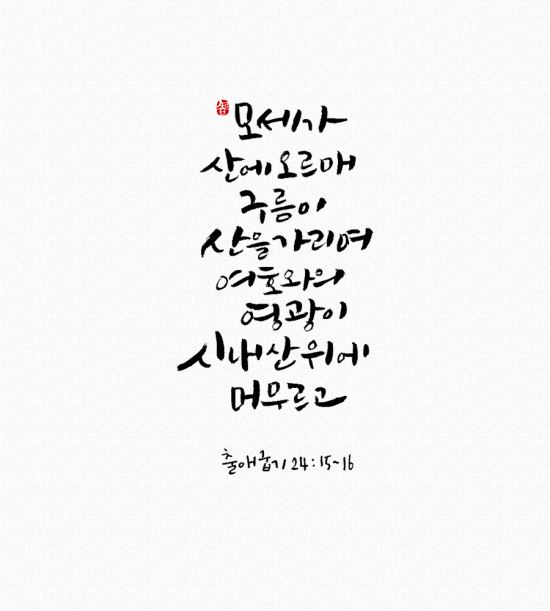 모세가
산에 오르매
구름이
산을 가리며
여호와의
영광이
시내 산 위에
머무르고
출애굽기 24:15~16